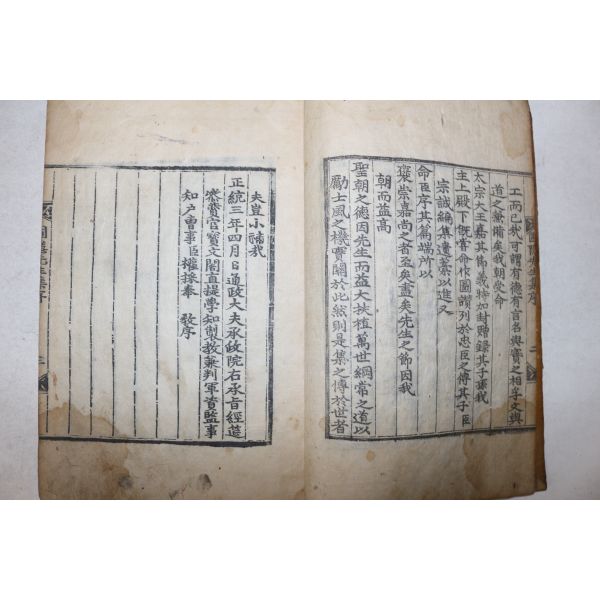 工而已哉可謂有德有言名與實之相孚文與
道之兼備矣我朝受命
太宗大王嘉其偉義特加封贈錄其子孫我
主上殿下慨嘗命作圖讚列於忠臣之傳其子臣
宗誠編集遺藁以進又
命臣序其篇端所以
褒崇嘉尚之者至矣盡矣先生之節因我
朝而益高
聖朝之德因先生而益大扶植萬世綱常之道以
勵士風之機實關於此然則是集之傳於世者
夫豈小補哉
正統三年四月日通政大夫承政院右承旨經筵
叅贊官寶文閣直提學知製教兼判軍資監事
知戶曹事臣權採奉 教序
圃隱先生集序